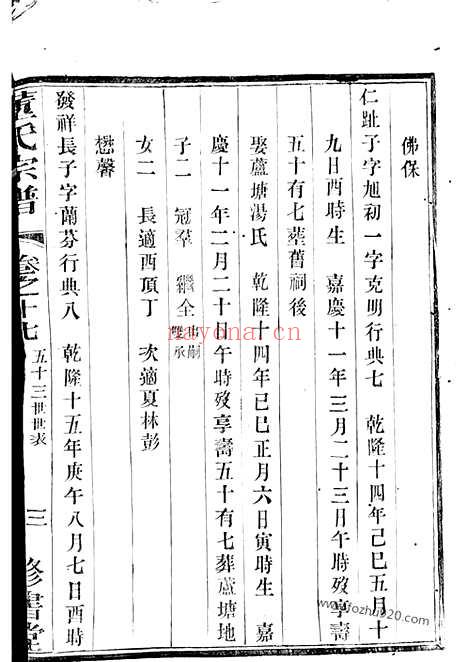 佛保
仁趾子字旭初一字克明行典七 乾隆十四年己巳五月十
九日酉時生 嘉慶十一年三月二十三日午時歿享壽
五十有七葬舊祠後
娶蘆塘湯氏 乾隆十四年己巳正月六日寅時生 嘉
慶十一年二月二十日午時歿享壽五十有七葬蘆塘地
子二 冠羣 繼全出嗣雙承
女二 長適酉頂丁 次適夏林彭
懋馨
發祥長子字蘭芬行典八 乾隆十五年庚午八月七日酉時
氏宗譜 卷之十七 五十三世世表 三 修書堂
nayona.cn
www.fozhu920.com